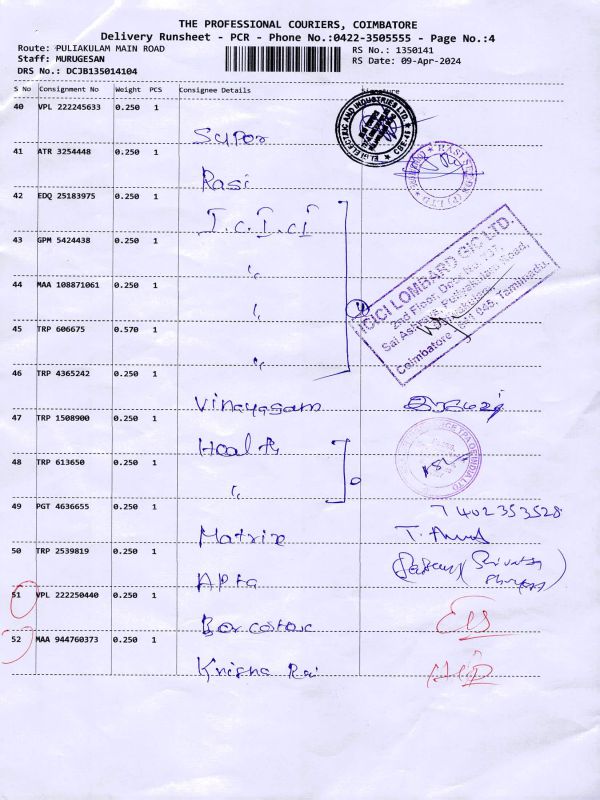 THE PROFESSIONAL COURIERS, COIMBATORE
Delivery Runsheet - PCR - Phone No.:0422-3505555 - Page No.:4
Route: PULIAKULAM MAIN ROAD
RS No.: 1350141
Staff: MURUGESAN
RS Date: 09-Apr-2024
DRS No.: DCJB135014104
S No Consignment No Weight PCS Consignee Details Signature
40 VPL 222245633 0.250 1
Super
41 ATR 3254448 0.250 1
Rasi
42 EDQ 25183975 0.250 1
I.C.I.CI
43 GPM 5424438 0.250 1
"
44 MAA 108871061 0.250 1
"
45 TRP 606675 0.570 1
"
46 TRP 4365242 0.250 1
Vinayagam
47 TRP 1508900 0.250 1
Health
48 TRP 613650 0.250 1
"
49 PGT 4636655 0.250 1
7402353528
Matrix
50 TRP 2539819 0.250 1
Apta
51 VPL 222250440 0.250 1
52 MAA 944760373 0.250 1
Krisha Rai
ELGI ELECTRIC AND INDUSTRIES LTD
RASI
ICICI LOMBARD GIC LTD.
2nd Floor, Door No.
Puliyakulam Road,
Coimbatore - 641 045, Tamilnadu.